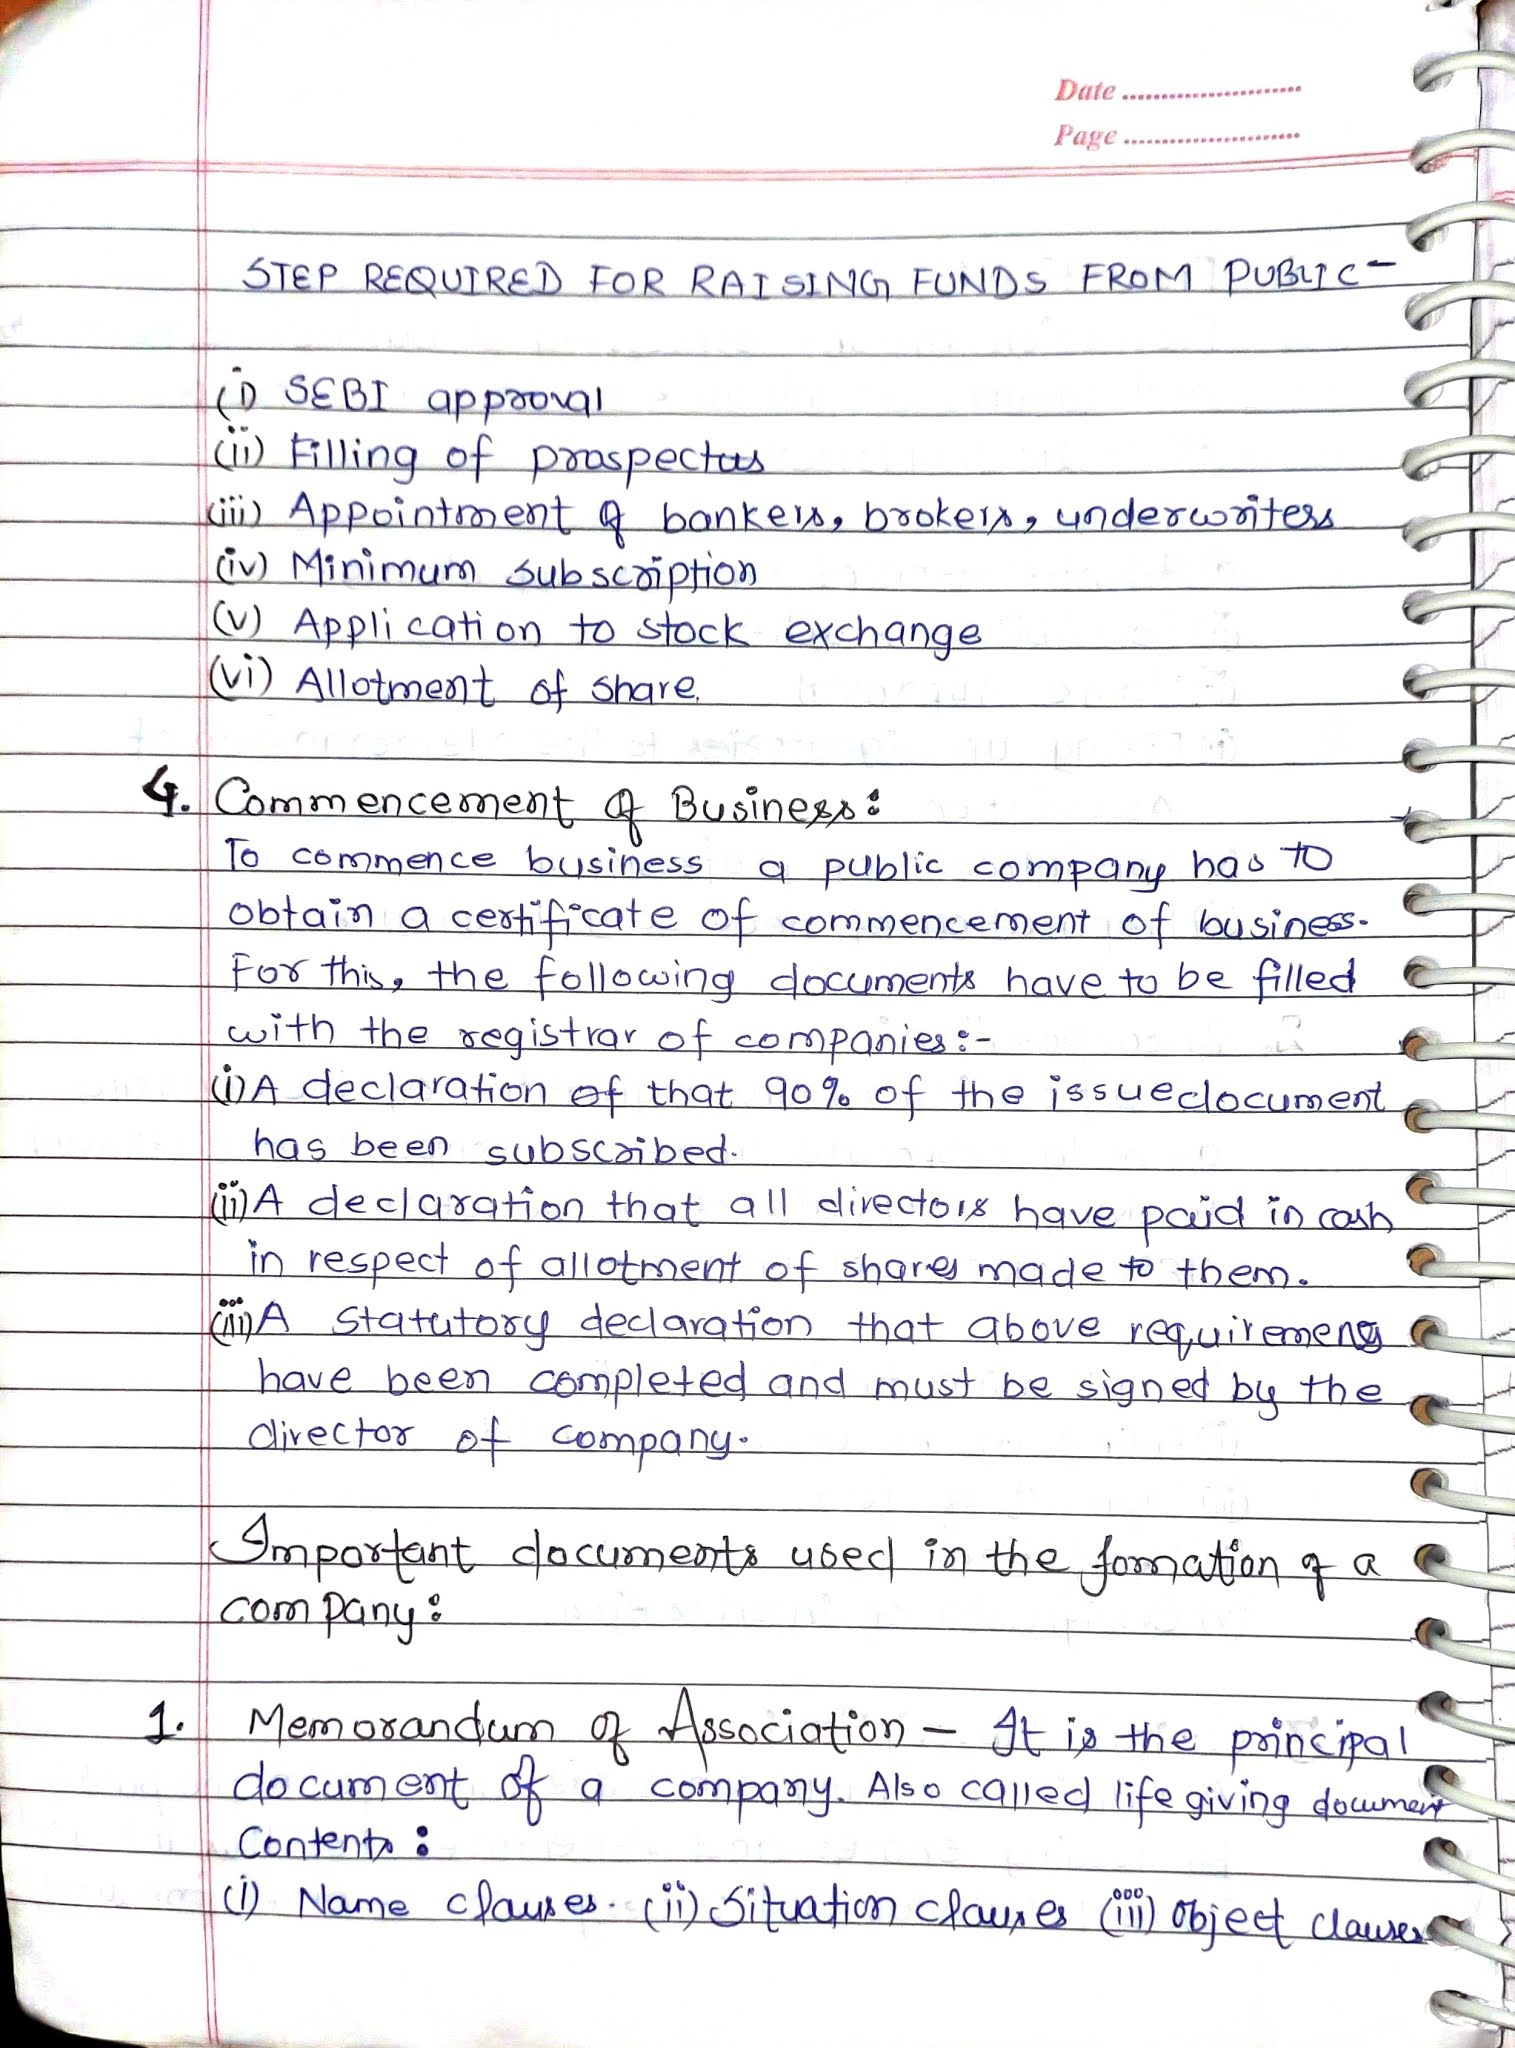 Date ........................
Page ........................
STEP REQUIRED FOR RAISING FUNDS FROM PUBLIC -
(i) SEBI approval
(ii) Filling of prospectus
(iii) Appointment of bankers, brokers, underwriters
(iv) Minimum subscription
(v) Application to stock exchange
(vi) Allotment of share.
4. Commencement of Business:
To commence business a public company has to
obtain a certificate of commencement of business.
For this, the following documents have to be filled
with the registrar of companies:-
(i) A declaration of that 90% of the issue document
has been subscribed.
(ii) A declaration that all directors have paid in cash
in respect of allotment of shares made to them.
(iii) A statutory declaration that above requirements
have been completed and must be signed by the
director of company.
Important documents used in the formation of a
company:
1. Memorandum of Association - It is the principal
document of a company. Also called life giving document
Contents:
(i) Name clauses. (ii) Situation clauses (iii) Object clauses